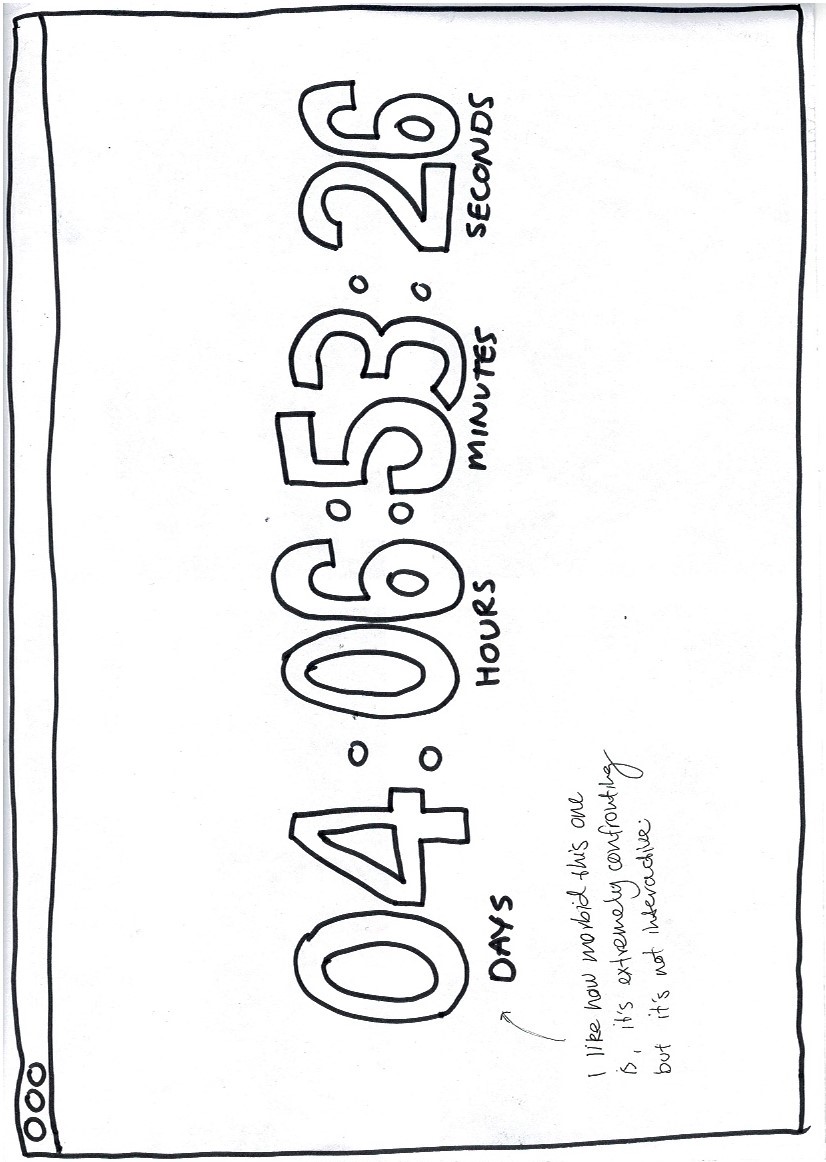 04:06:53:26
DAYS HOURS MINUTES SECONDS
I like how morbid this one
is, it's extremely confronting
but it's not interactive.